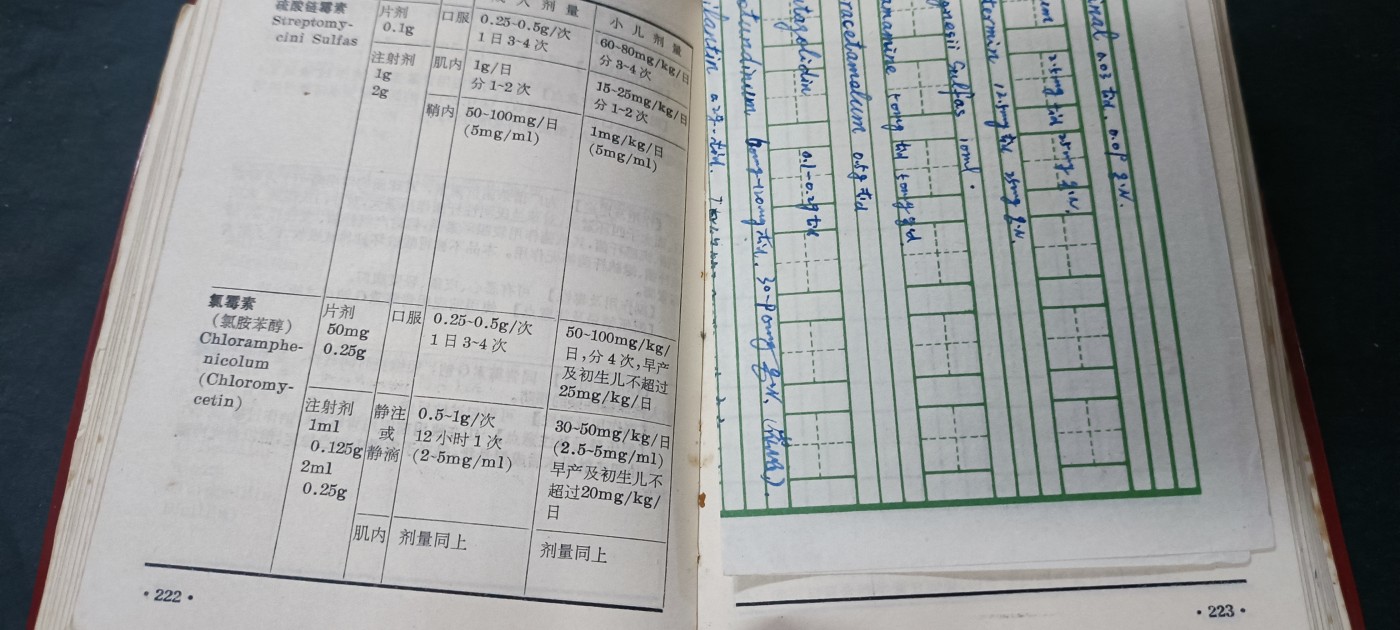 硫酸链霉素
Streptomy-
cini Sulfas
片剂
0.1g
口服
人剂量
0.25~0.5g/次
1日3~4次
小儿剂量
60~80mg/kg/日
分3~4次
注射剂
1g
2g
肌内
1g/日
分1~2次
15~25mg/kg/日
分1~2次
鞘内
50~100mg/日
(5mg/ml)
1mg/kg/日
(5mg/ml)
氯霉素
(氯胺苯醇)
Chloramphe-
nicolum
(Chloromy-
cetin)
片剂
50mg
0.25g
口服
0.25~0.5g/次
1日3~4次
50~100mg/kg/
日,分4次,早产
及初生儿不超过
25mg/kg/日
注射剂
1ml
0.125g
2ml
0.25g
静注
或
静滴
0.5~1g/次
12小时1次
(2~5mg/ml)
30~50mg/kg/日
(2.5~5mg/ml)
早产及初生儿不
超过20mg/kg/
日
肌内
剂量同上
剂量同上
·222·
nal 0.03 tid.
25mg tid 25mg q.N.
tormin 12.5mg tid 25mg q.N.
gnesii Sulfas 10ml.
namine 50mg tid 50mg qd
racetamolum 0.5g tid
tazolidin 0.1-0.2g tid
tundinum 60mg-120mg tid.
lantin 0.2g-tid.
·223·